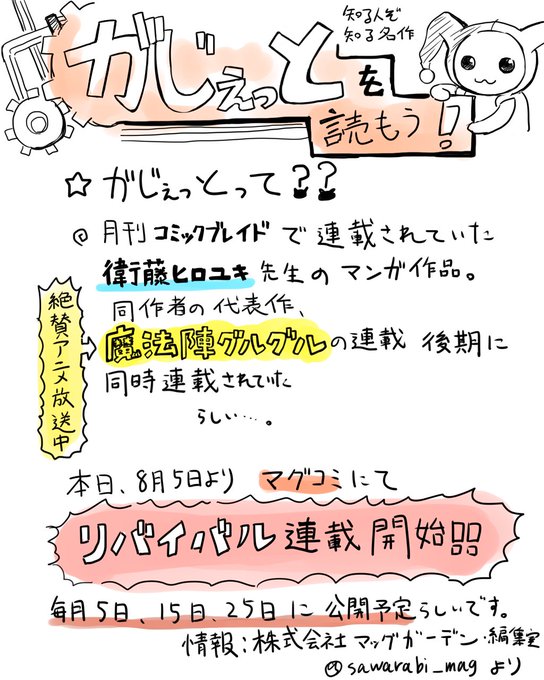 知る人ぞ
知る名作
がじぇっとを
読もう!
☆ がじぇっとって??
◎ 月刊コミックブレイドで連載されていた
衛藤ヒロユキ先生のマンガ作品。
同作者の代表作、
絶賛アニメ放送中
魔法陣グルグルの連載後期に
同時連載されていた
らしい…。
本日、8月5日より マグコミにて
リバイバル連載開始!!
毎月5日、15日、25日に公開予定らしいです。
情報:株式会社マッグガーデン・編集室
@sawarabi_magより